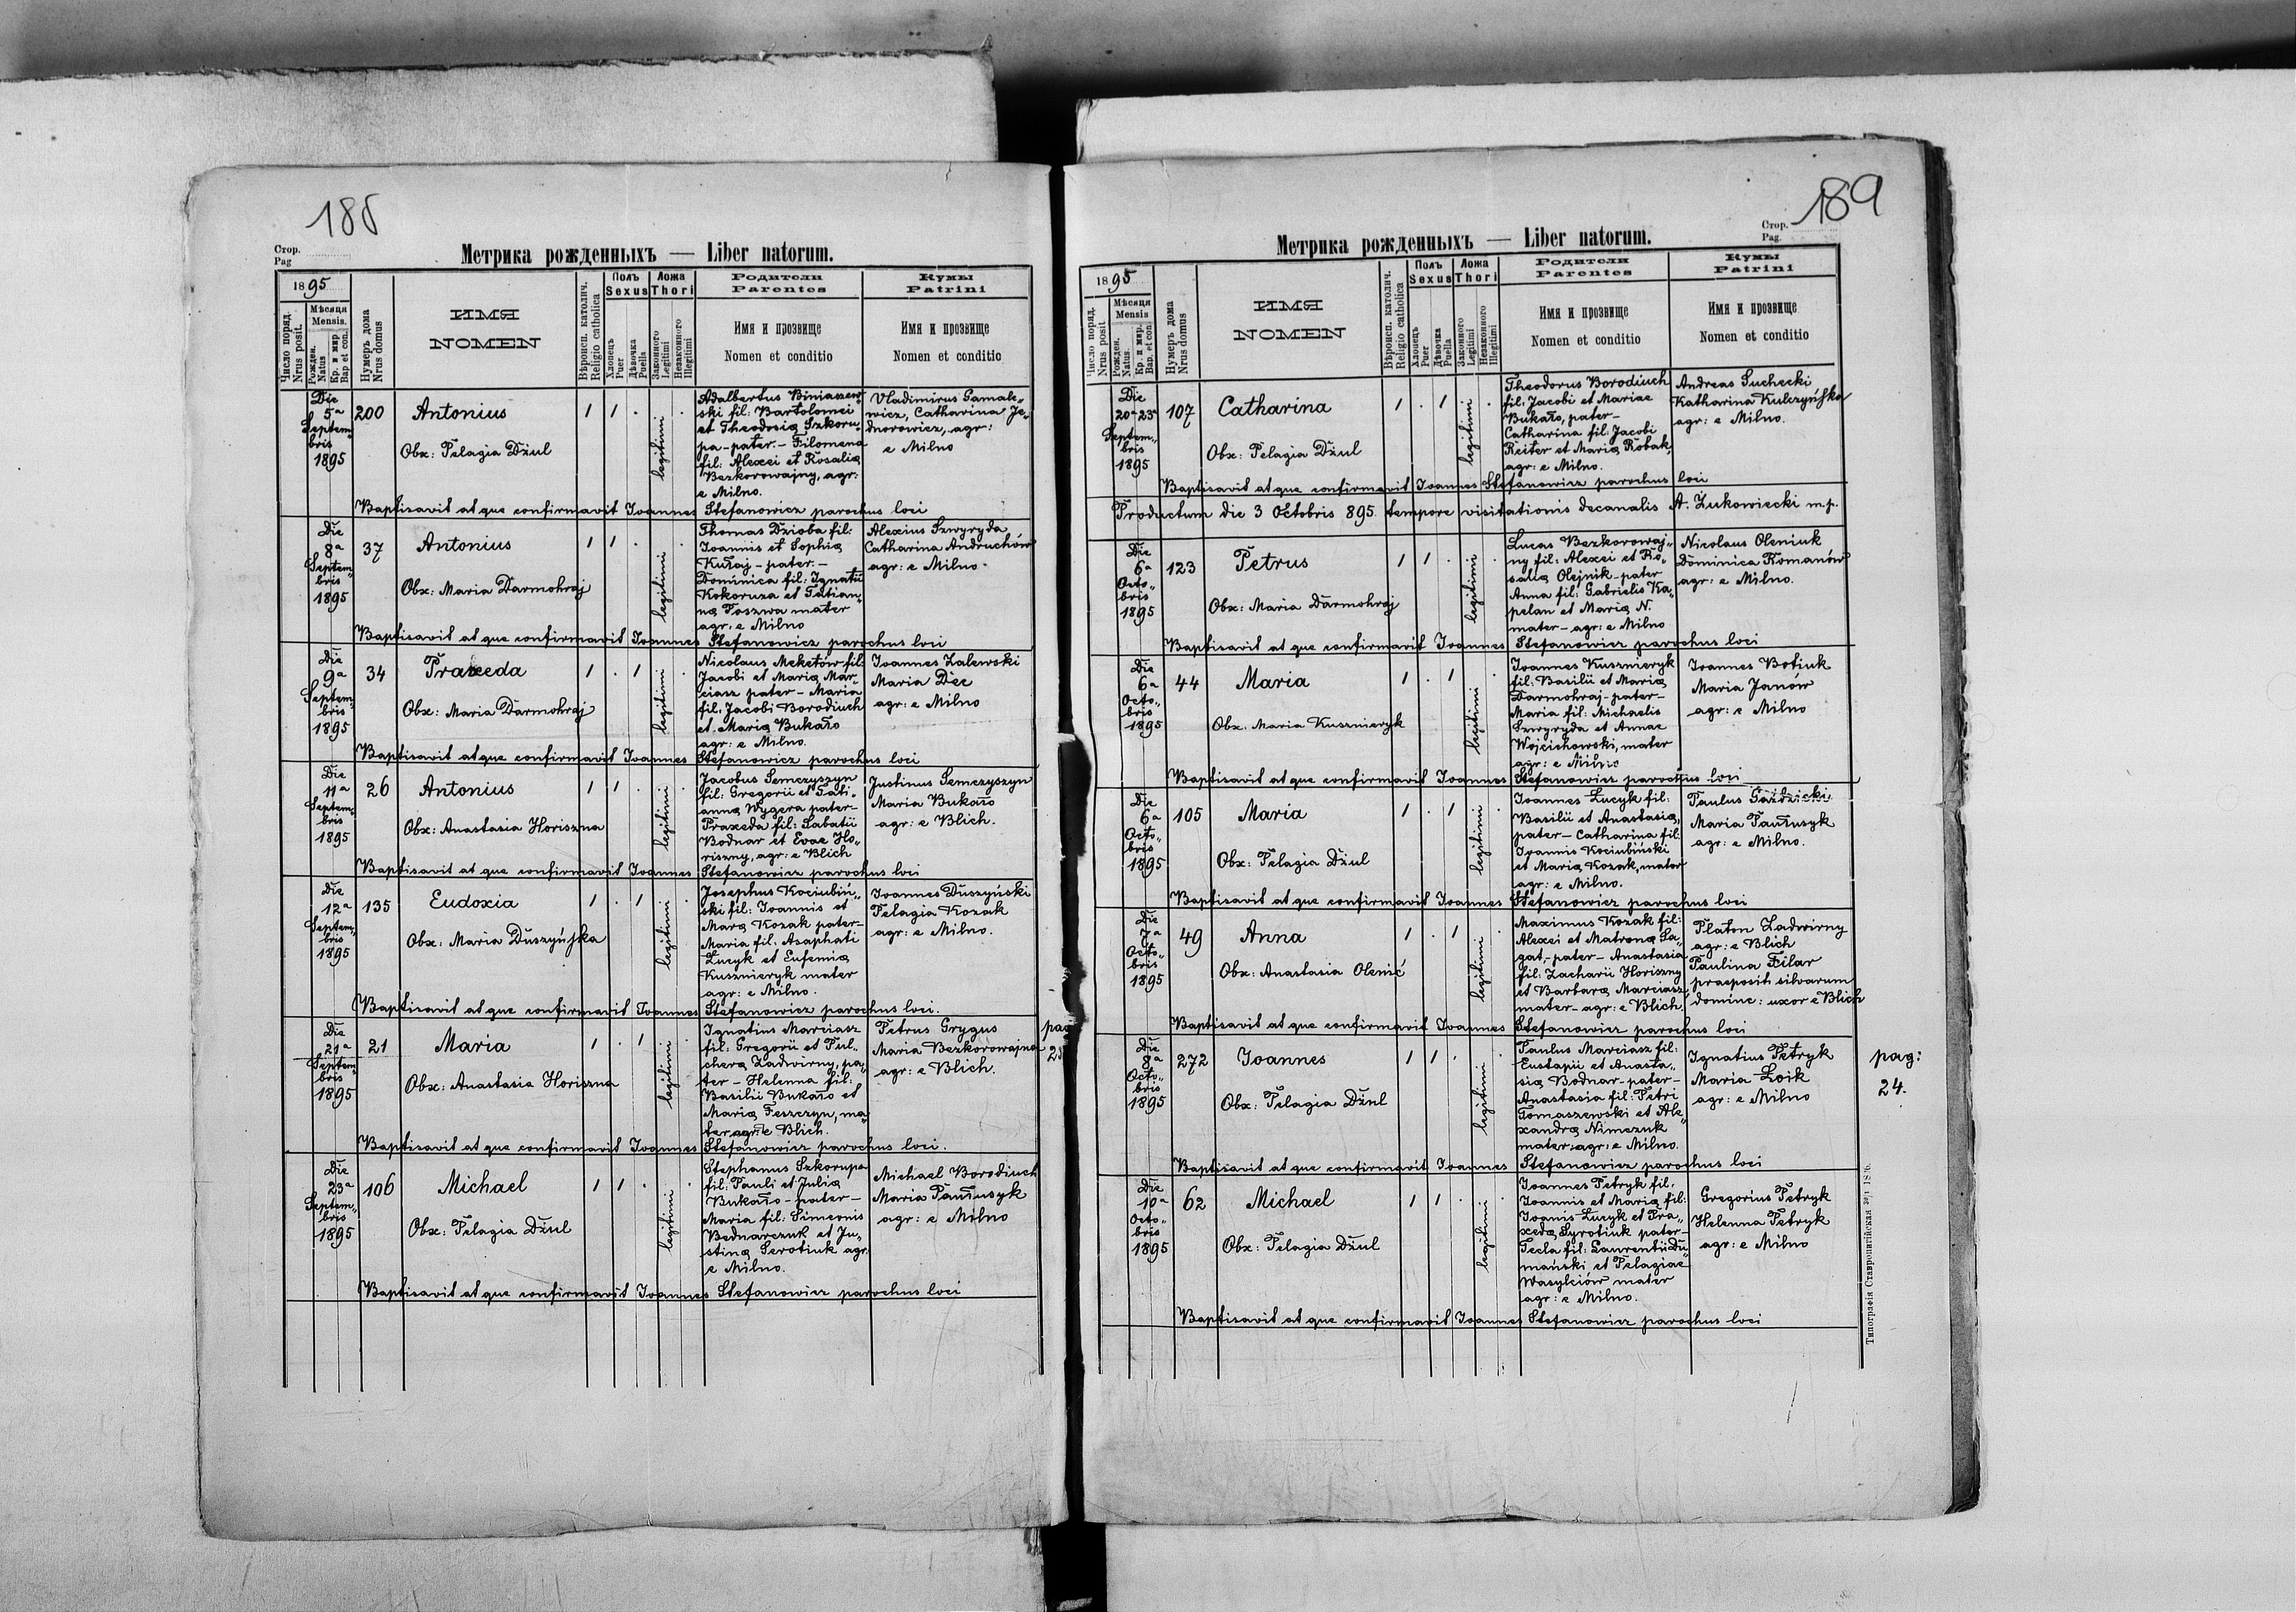 188
Стор.
Pag
Метрика рожденныхъ — Liber natorum.
1895
Число поряд.
Nrus posit.
Мѣсяця
Mensis.
Рожден.
Natus
Кр. и мир.
Bap et con.
Нумеръ дома
Nrus domus
ИМЯ
NOMEN
Вѣроисп. католич.
Religio catholica
Полъ
Sexus
Хлопець
Puer
Дѣвочка
Puella
Ложа
Thori
Законного
Legitimi
Незаконного
Illegitimi
Родители
Parentes
Имя и прозвище
Nomen et conditio
Кумы
Patrini
Имя и прозвище
Nomen et conditio
Die
5a
Septem„
bris
1895
200
Antonius
Obx: Pelagia Dżul
1 1 . legitimi .
Adalbertus Biniaszew„
ski fil: Bartolomei
et Theodosia Szkoru„
pa - pater - Filomena
fil: Alexei et Rosalia
Bezkorowajny, agr:
e Milno.
Vladimirus Gamale„
wicz, Catharina Je„
dnorowicz, agr:
e Milno
Baptisavit atque confirmavit Ioannes Stefanowicz parochus loci
Die
8a
Septem„
bris
1895
37
Antonius
Obx: Maria Darmohraj
1 1 . legitimi .
Thomas Dzioba fil:
Ioannis et Sophia
Kułaj - pater. -
Dominica fil: Ignatii
Kokoruza et Tatian„
na Poszwa mater
agr: e Milno
Alexius Szwyryda
Catharina Andruchów
agr: e Milno -
Baptisavit atque confirmavit Ioannes Stefanowicz parochus loci
Die
9a
Septem„
bris
1895
34
Praxeda
Obx: Maria Darmohraj
1 . 1 legitimi .
Nicolaus Meketów fil:
Jacobi et Maria Mar„
ciasz pater - Maria
fil: Jacobi Borodiuch
et Maria Bukało
agr: e Milno.
Ioannes Zalewski
Maria Dec
agr: e Milno
Baptisavit atque confirmavit Ioannes Stefanowicz parochus loci
Die
11a
Septem„
bris
1895
26
Antonius
Obx: Anastasia Horiszna
1 1 . legitimi .
Jacobus Semczyszyn
fil: Gregorii et Tati„
anna Wygera pater -
Praxeda fil: Sabatii
Bodnar et Evae Ho„
riszny, agr: e Blich
Justinus Semczyszyn
Maria Bukało
agr: e Blich.
Baptisavit atque confirmavit Ioannes Stefanowicz parochus loci
Die
12a
Septem„
bris
1895
135
Eudoxia
Obx: Maria Duszyńska
1 . 1 legitimi .
Josephus Kociubiń„
ski fil: Ioannis et
Mara Kozak pater -
Maria fil: Asaphati
Łucyk et Eufemia
Kusznieryk mater
agr: e Milno.
Ioannes Duszyński
Pelagia Kozak
agr: e Milno.
Baptisavit atque confirmavit Ioannes Stefanowicz parochus loci.
Die
21a
Septem„
bris
1895
21
Maria
Obx: Anastasia Horiszna
1 . 1 legitimi .
Ignatius Marciasz
fil: Gregorii et Pul„
chera Zadwirny, pa„
ter - Helenna fil:
Basilii Bukało et
Maria Feszczyn, ma„
ter agr: e Blich.
Petrus Grygus
Maria Bezkorowajna
agr: e Blich.
pag
Baptisavit atque confirmavit Ioannes Stefanowicz parochus loci.
Die
23a
Septem„
bris
1895
106
Michael
Obx: Pelagia Dżul
1 1 . legitimi .
Stephanus Szkorupa
fil: Pauli et Julia
Bukało - pater -
Maria fil: Simeonis
Bednarczuk et Ju„
stina Serotiuk agr:
e Milno.
Michael Borodiuch
Maria Pańusyk
agr: e Milno
Baptisavit atque confirmavit Ioannes Stefanowicz parochus loci
189
Стор.
Pag.
Метрика рожденныхъ — Liber natorum.
1895
Число поряд.
Nrus posit.
Мѣсяця
Mensis
Рожден.
Natus.
Кр. и мир.
Bap. et con.
Нумеръ дома
Nrus domus
ИМЯ
NOMEN
Вѣроисп. католич.
Religio catholica
Полъ
Sexus
Хлопець
Puer
Дѣвочка
Puella
Ложа
Thori
Законного
Legitimi
Незаконного
Illegitimi
Родители
Parentes
Имя и прозвище
Nomen et conditio
Кумы
Patrini
Имя и прозвище
Nomen et conditio
Die
20a 23a
Septem„
bris
1895
107
Catharina
Obx: Pelagia Dżul
1 . 1 legitimi .
Theodorus Borodiuch
fil: Jacobi et Mariae
Bukało, pater -
Catharina fil: Jacobi
Reiter et Maria Robak,
agr: e Milno.
Andreas Suchecki
Katharina Kulczyńska
agr: e Milno.
Baptisavit atque confirmavit Ioannes Stefanowicz parochus loci
Productum die 3 Octobris 895. tempore visitationis decanalis A. Żukowiecki m.p.
Die
6a
Octo„
bris
1895
123
Petrus
Obx: Maria Darmohraj
1 1 . legitimi .
Lucas Bezkorowaj„
ny fil: Alexei et Ro„
salia Olejnik - pater
Anna fil: Gabrielis Ka„
pelan et Maria N.
mater - agr: e Milno
Nicolaus Oleniuk
Dominica Romanów
agr: e Milno.
Baptisavit atque confirmavit Ioannes Stefanowicz parochus loci
Die
6a
Octo„
bris
1895
44
Maria
Obx. Maria Kusznieryk
1 . 1 legitimi .
Ioannes Kusznieryk
fil: Basilii et Maria
Darmohraj - pater -
Maria fil: Michaelis
Szwyryda et Annae
Wojciechowski, mater
agr: e Milno
Ioannes Botiuk
Maria Janów
agr: e Milno
Baptisavit atque confirmavit Ioannes Stefanowicz parochus loci
Die
6a
Octo„
bris
1895
105
Maria
Obx: Pelagia Dżul
1 . 1 legitimi .
Ioannes Łucyk fil:
Basilii et Anastasia,
pater - Catharina fil:
Ioannis Kociubiński
et Maria Kozak, mater
agr: e Milno.
Paulus Gaździcki
Maria Pańusyk
agr: e Milno.
Baptisavit atque confirmavit Ioannes Stefanowicz parochus loci
Die
7a
Octo„
bris
1895
49
Anna
Obx: Anastasia Olenić
1 . 1 legitimi .
Maximus Kozak fil:
Alexei et Matrona Sa„
gat, - pater - Anastasia
fil: Zacharii Horiszny
et Barbara Marciasz,
mater - agr: e Blich.
Platon Zadwirny
agr: e Blich
Paulina Filar
praepositi silvarum
dominc: uxor e Blich
Baptisavit atque confirmavit Ioannes Stefanowicz parochus loci
Die
8a
Octo„
bris
1895
272
Ioannes
Obx: Pelagia Dżul
1 1 . legitimi .
Paulus Marciasz fil:
Eustapii et Anasta„
sia Bodnar - pater -
Anastasia fil: Petri
Tomaszewski et Ale„
xandra Nimczuk
mater: agr: e Milno.
Ignatius Petryk
Maria Łoik
agr: e Milno
pag:
24.
Baptisavit atque confirmavit Ioannes Stefanowicz parochus loci
Die
10a
Octo„
bris
1895
62
Michael
Obx: Pelagia Dżul
1 1 . legitimi .
Ioannes Petryk fil:
Ioannis et Maria fil:
Ioanis Łucyk et Pra„
xeda Syrotiuk pater -
Tecla fil: Laurentii Du„
mański et Pelagiae
Wasylciów mater
agr: e Milno.
Gregorius Petryk
Helenna Petryk
agr: e Milno
Baptisavit atque confirmavit Ioannes Stefanowicz parochus loci